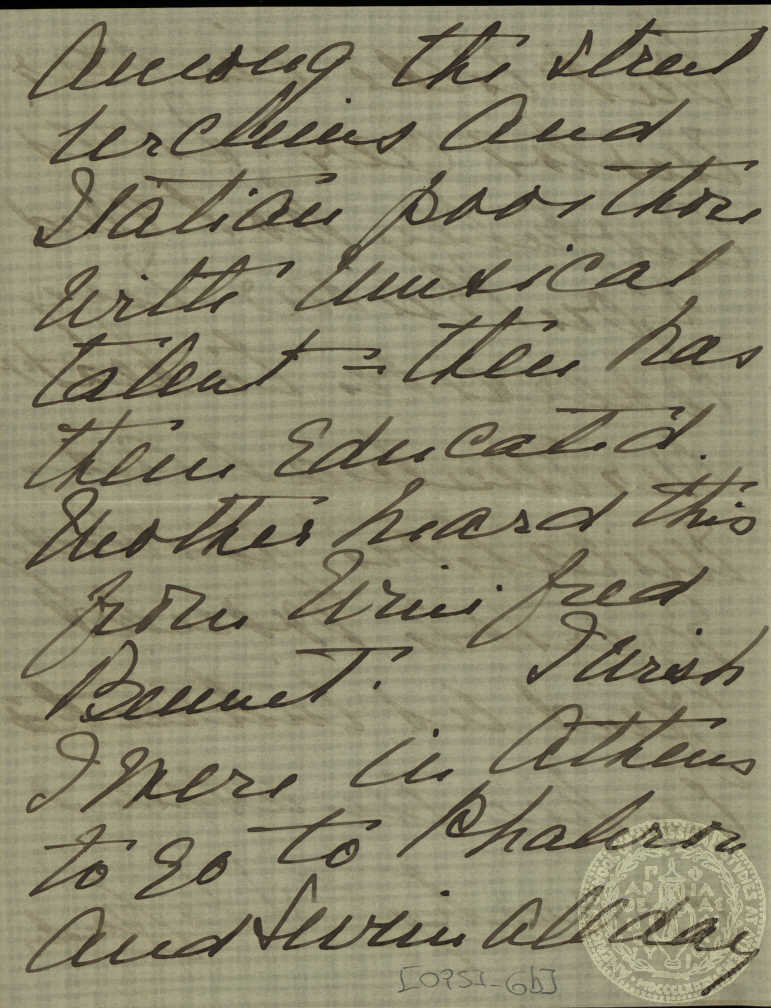 Among the street
urchins and
Italian poor those
with musical
talent = then has
them educated.
Mother heard this
from Winifred
Bennet. I wish
I were in Athens
to go to Phaleron
and swim all day
[0951-6b]